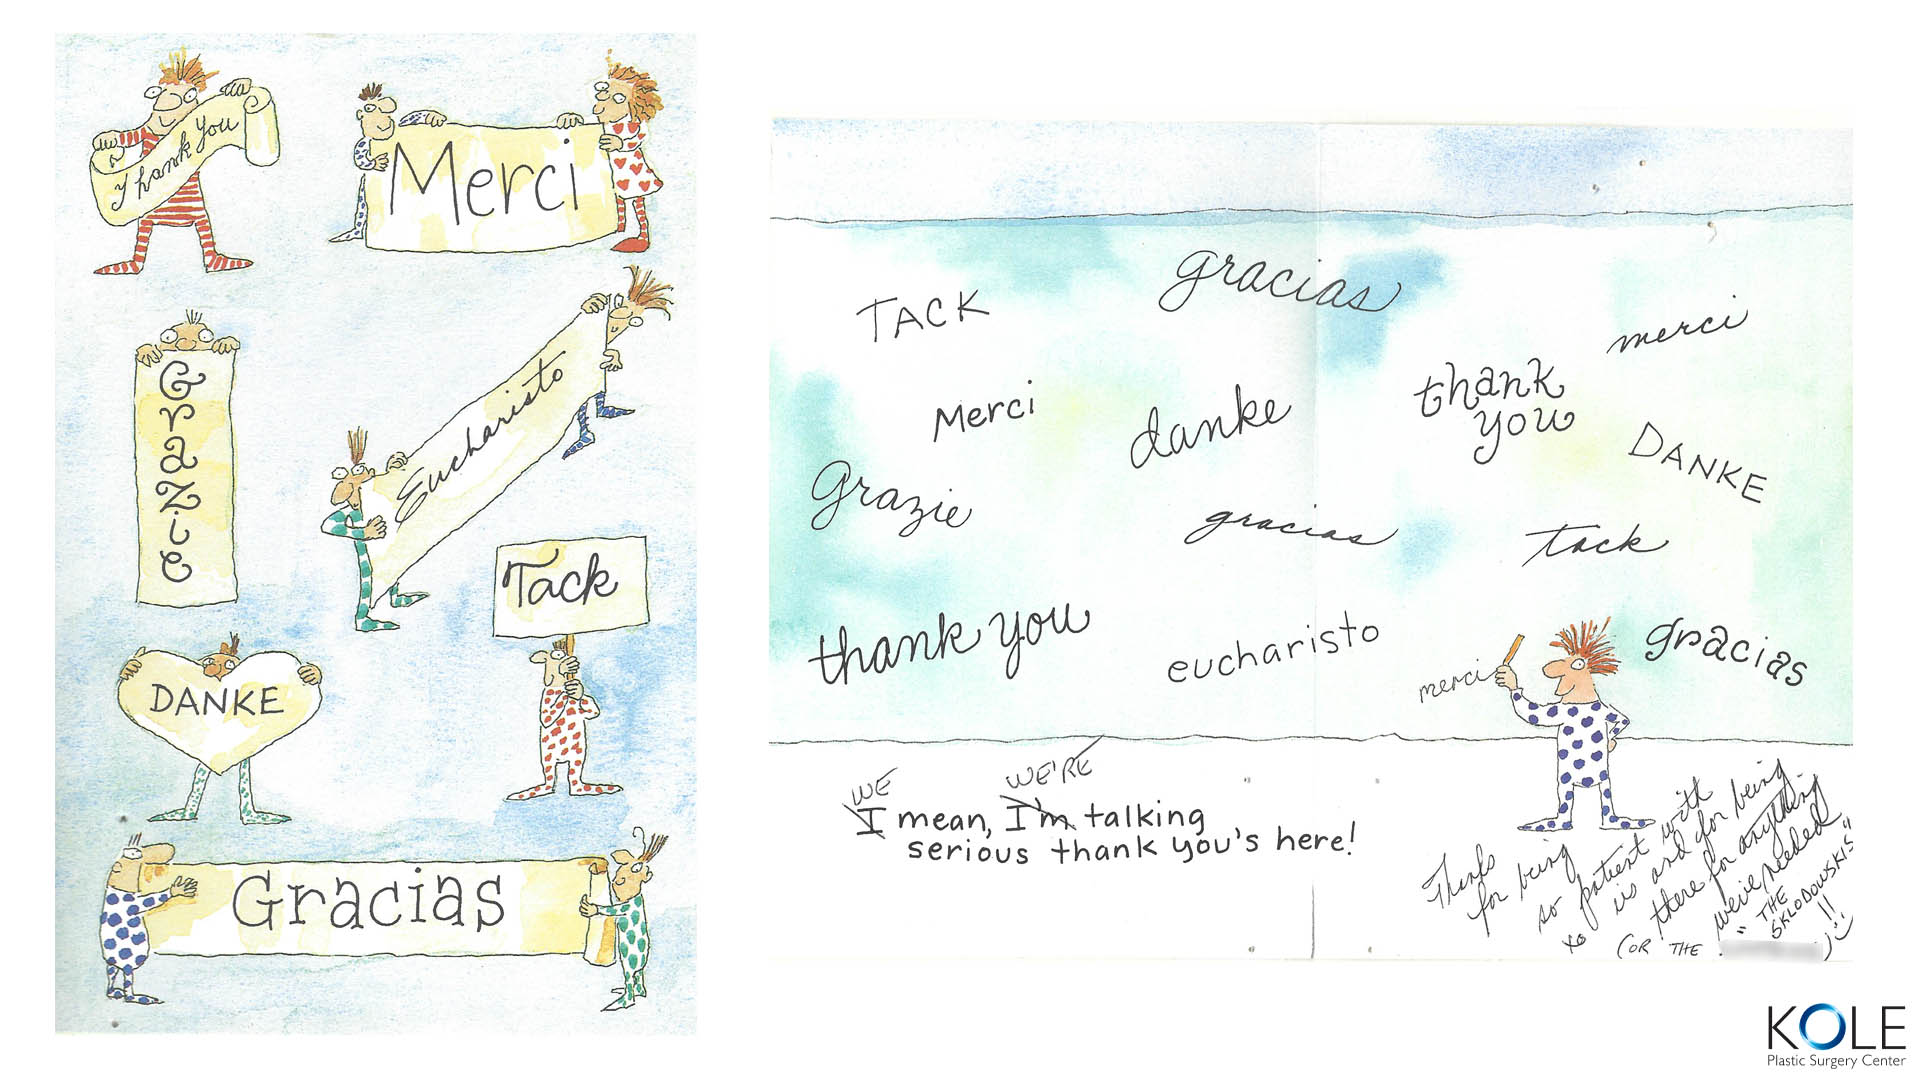 Thank you
Merci
Grazie
Eucharisto
Tack
DANKE
Gracias
TACK
gracias
merci
Merci
danke
thank
you
DANKE
grazie
gracias
tack
thank you
eucharisto
merci
gracias
WE WE'RE
I mean, I'm talking
serious thank you's here!
Thanks
for being
so patient with
us and for being
there for anything
we've needed
xo
"THE
SKLODOWSKIS"
(OR THE
)!!
KOLE
Plastic Surgery Center